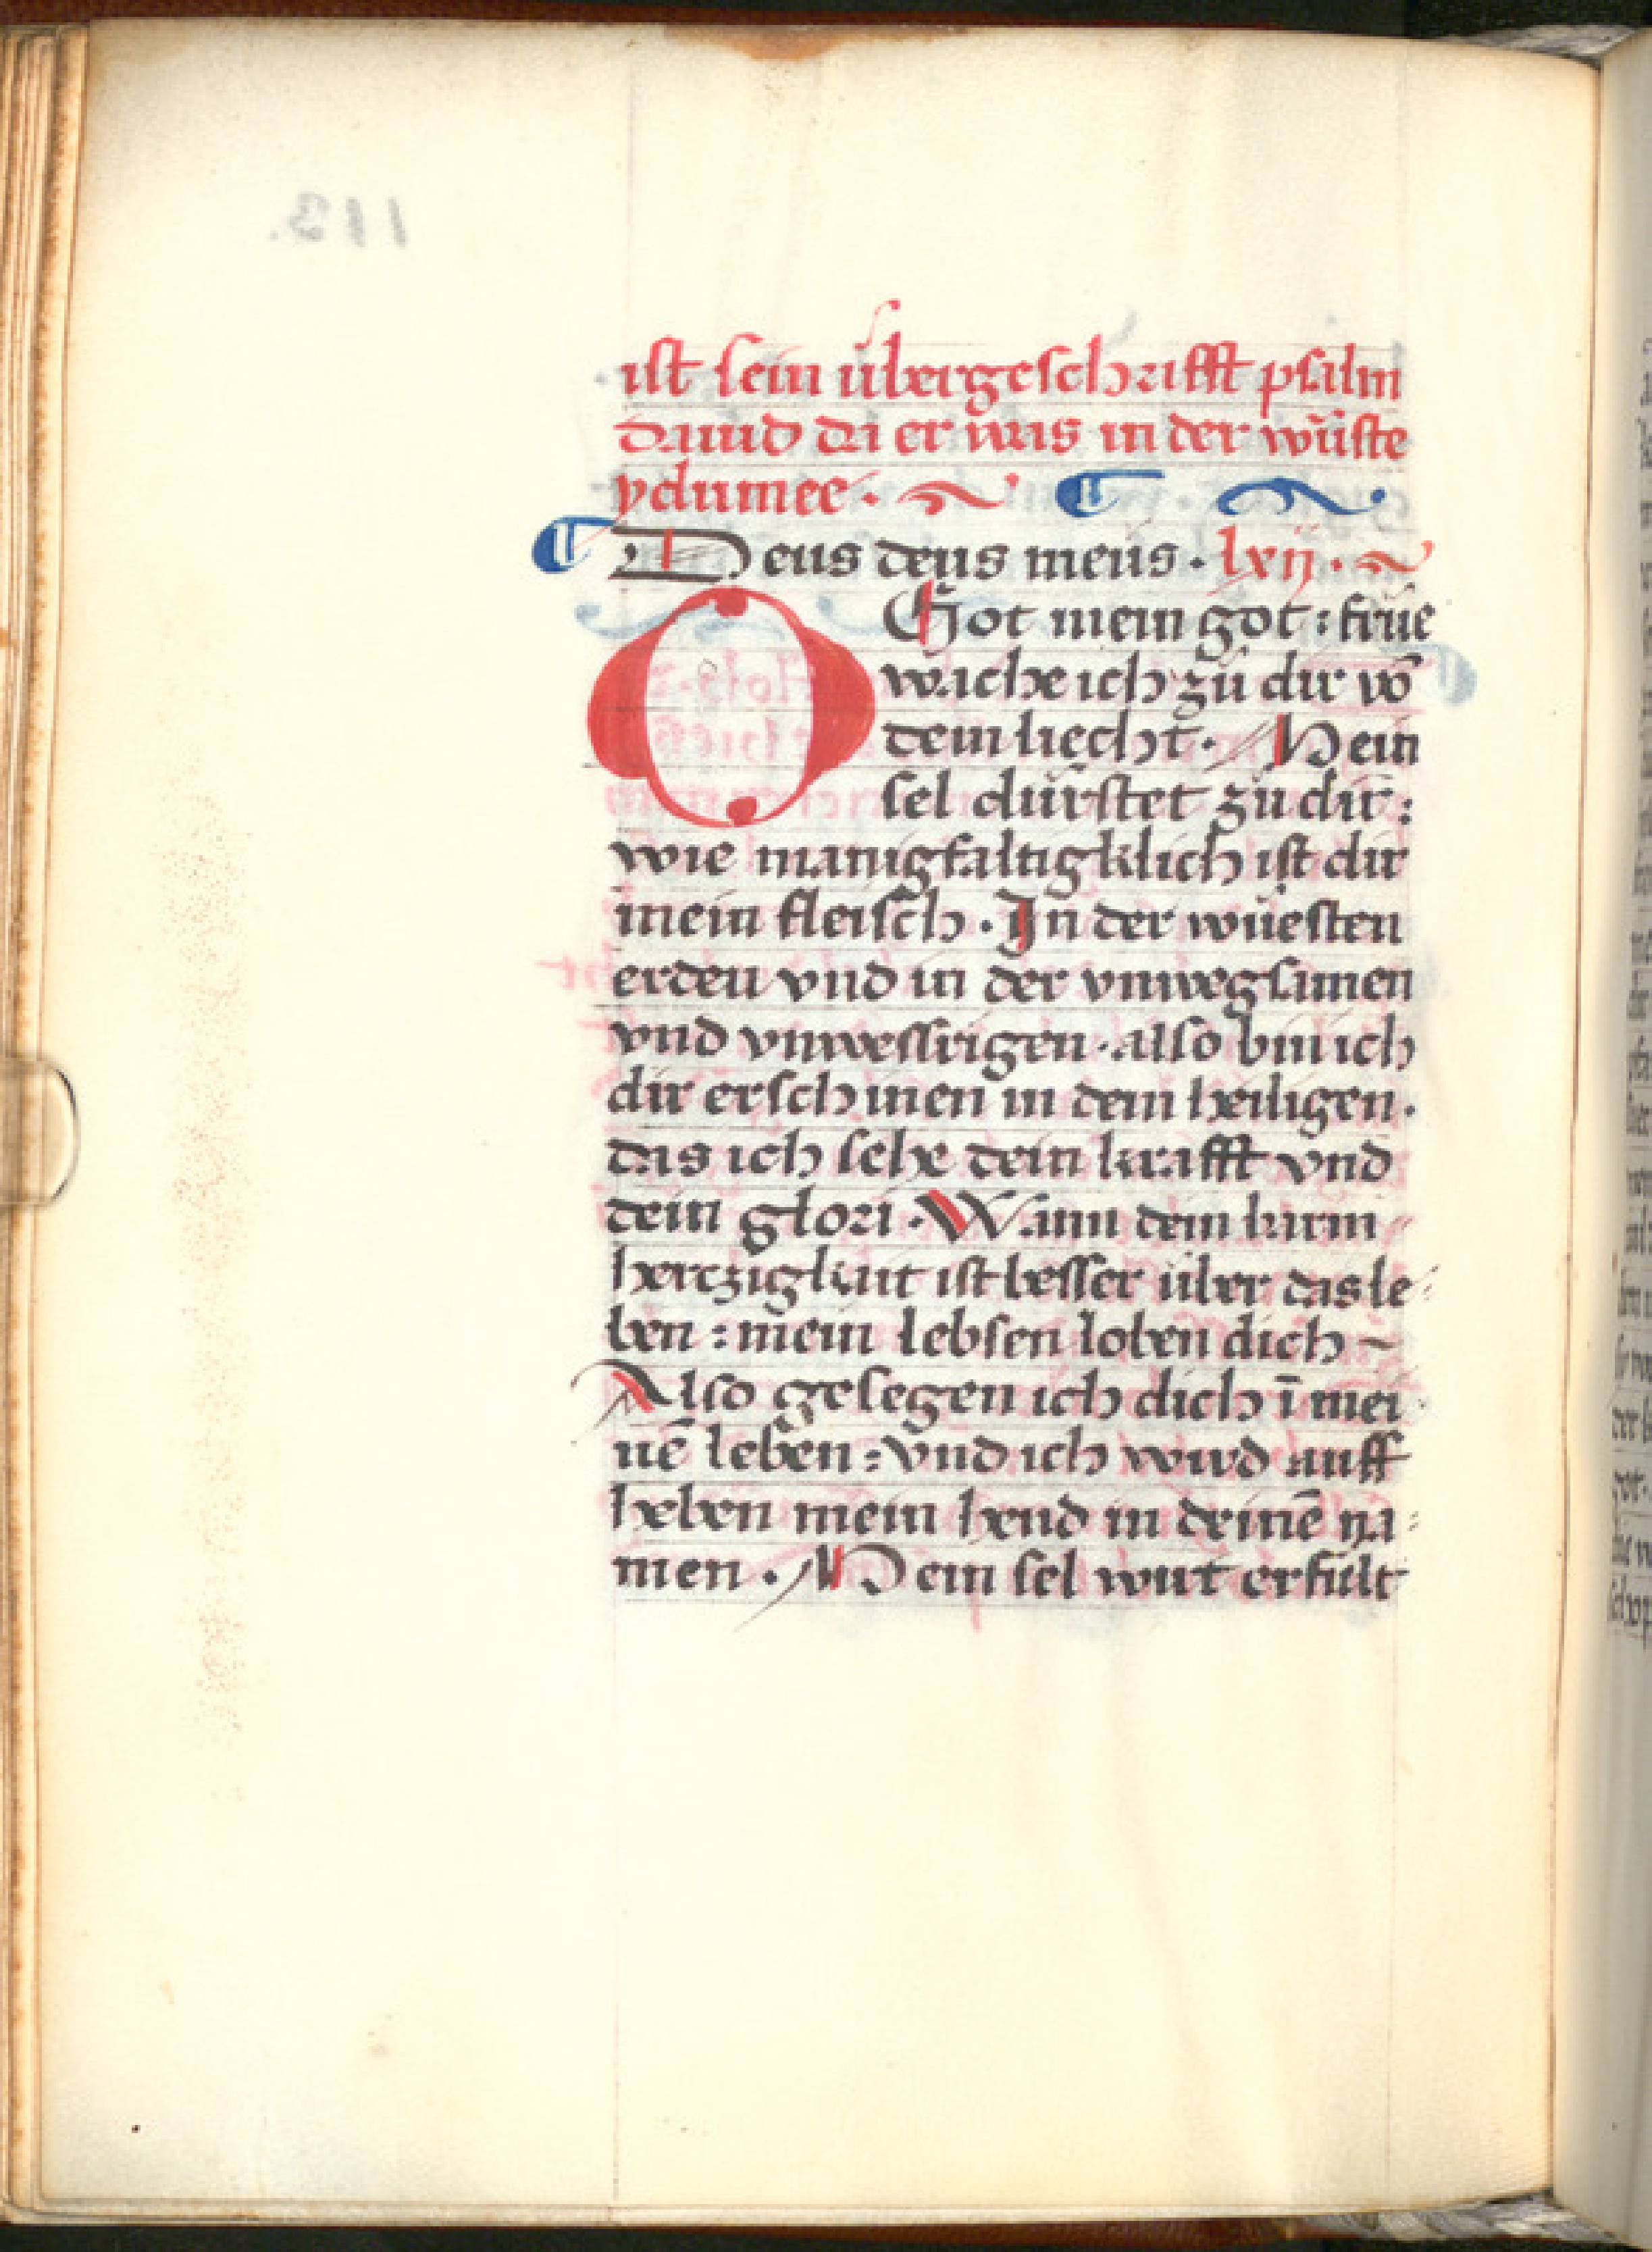 ist sein übergeschrifft psalm
dauid da er was in der wüste
ydumee.
Deus deus meus. lxij.
O Got mein got: frue
wache ich zu dir võ
dem liecht. Mein
sel dürstet zu dir:
wie manigfaltigklich ist dir
mein fleisch. In der wüesten
erden vnd in der vnwegsamen
vnd vnwessrigen. also bin ich
dir erschinen in dem heiligen.
das ich sehe dein krafft vnd
dein glori. Wann dein barm
hertzigkait ist besser über das le
ben: mein lebsen loben dich
Also gesegen ich dich ī mei
nē leben: vnd ich wird auff
heben mein hend in deinē na
men. Mein sel wirt erfült